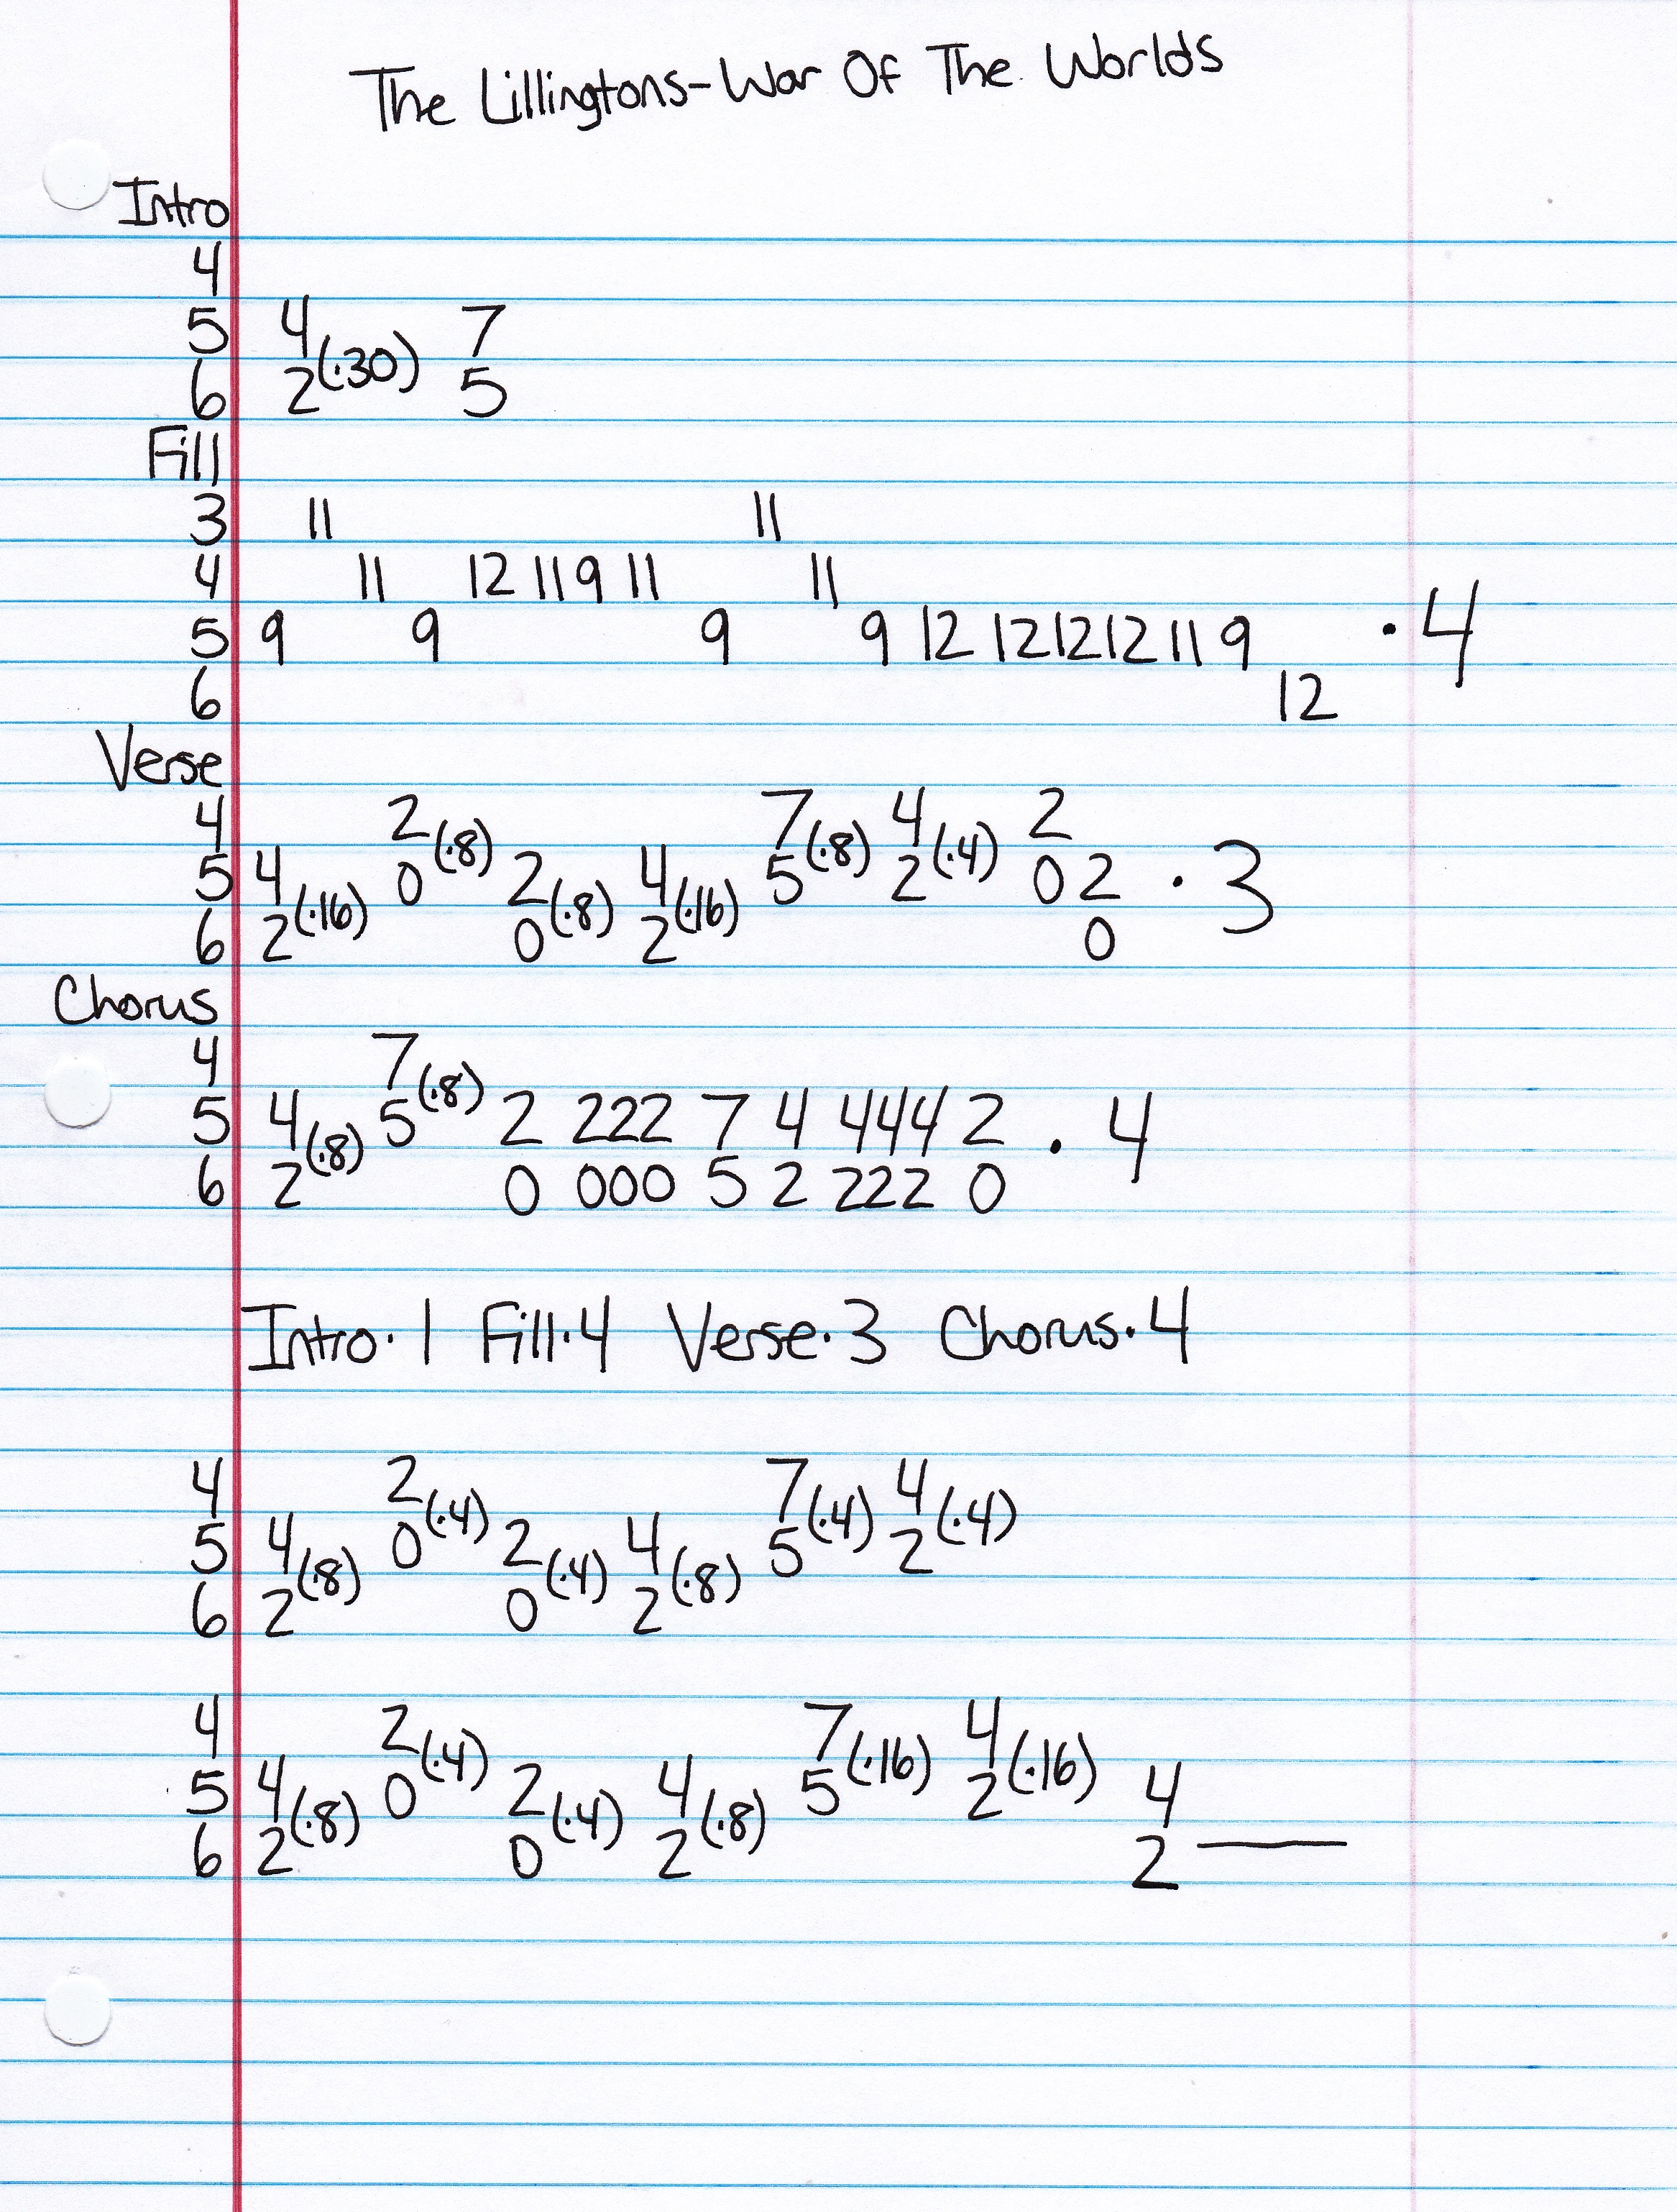 The Lillingtons-War Of The Worlds
Intro
4
5 4 7
6 2(·30) 5
Fill
3 11 11
4 11 12 11 9 11 11
5 9 9 9 9 12 12 12 12 11 9 ·4
6 12
Verse
4 2 7 4 2
5 4 0(·8) 2 4 5(·8) 2(·4) 0 2 ·3
6 2(·16) 0(·8) 2(·16) 0
Chorus
4 7
5 4 5(·8) 2 222 7 4 444 2 · 4
6 2(·8) 0 000 5 2 222 0
Intro·1 Fill·4 Verse·3 Chorus·4
4 2 7 4
5 4 0(·4) 2 4 5(·4) 2(·4)
6 2(·8) 0(·4) 2(·8)
4 2 7 4
5 4 0(·4) 2 4 5(·16) 2(·16) 4
6 2(·8) 0(·4) 2(·8) 2